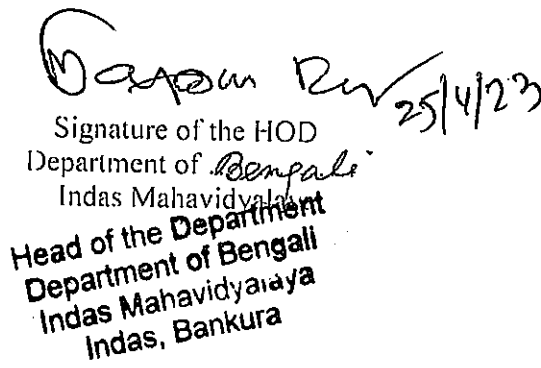 25/4/23
Signature of the HOD
Department of Bengali
Indas Mahavidyalaya
Head of the Department
Department of Bengali
Indas Mahavidyalaya
Indas, Bankura